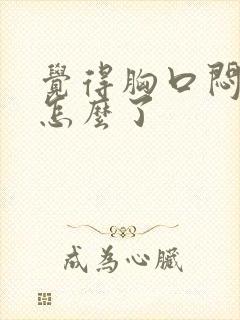 覺得胸口悶
怎麼了
成為心臟